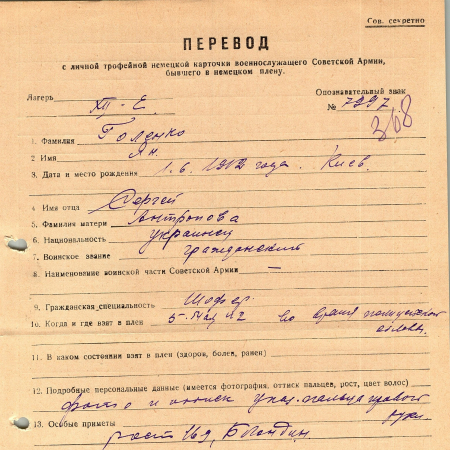 Сов. секретно
ПЕРЕВОД
с личной трофейной немецкой карточки военнослужащего Советской Армии,
бывшего в немецком плену.
Лагерь XII-E
Опознавательный знак
№ 7997
368
1. Фамилия Голенко
2 Имя Ян.
3. Дата и место рождения 1.6.1912 года. Киев.
4 Имя отца Сергей
5. Фамилия матери Антропова
6. Национальность украинец
7. Воинское звание гражданский
8. Наименование воинской части Советской Армии —
9. Гражданская специальность Шофер.
10. Когда и где взят в плен 5. 42 во время полицейской
облавы.
11. В каком состоянии взят в плен (здоров, болен, ранен)
12. Подробные персональные данные (имеется фотография, оттиск пальцев, рост, цвет волос)
фото и оттиск указ. пальца правой
руки.
13. Особые приметы
рост 169, Блондин.